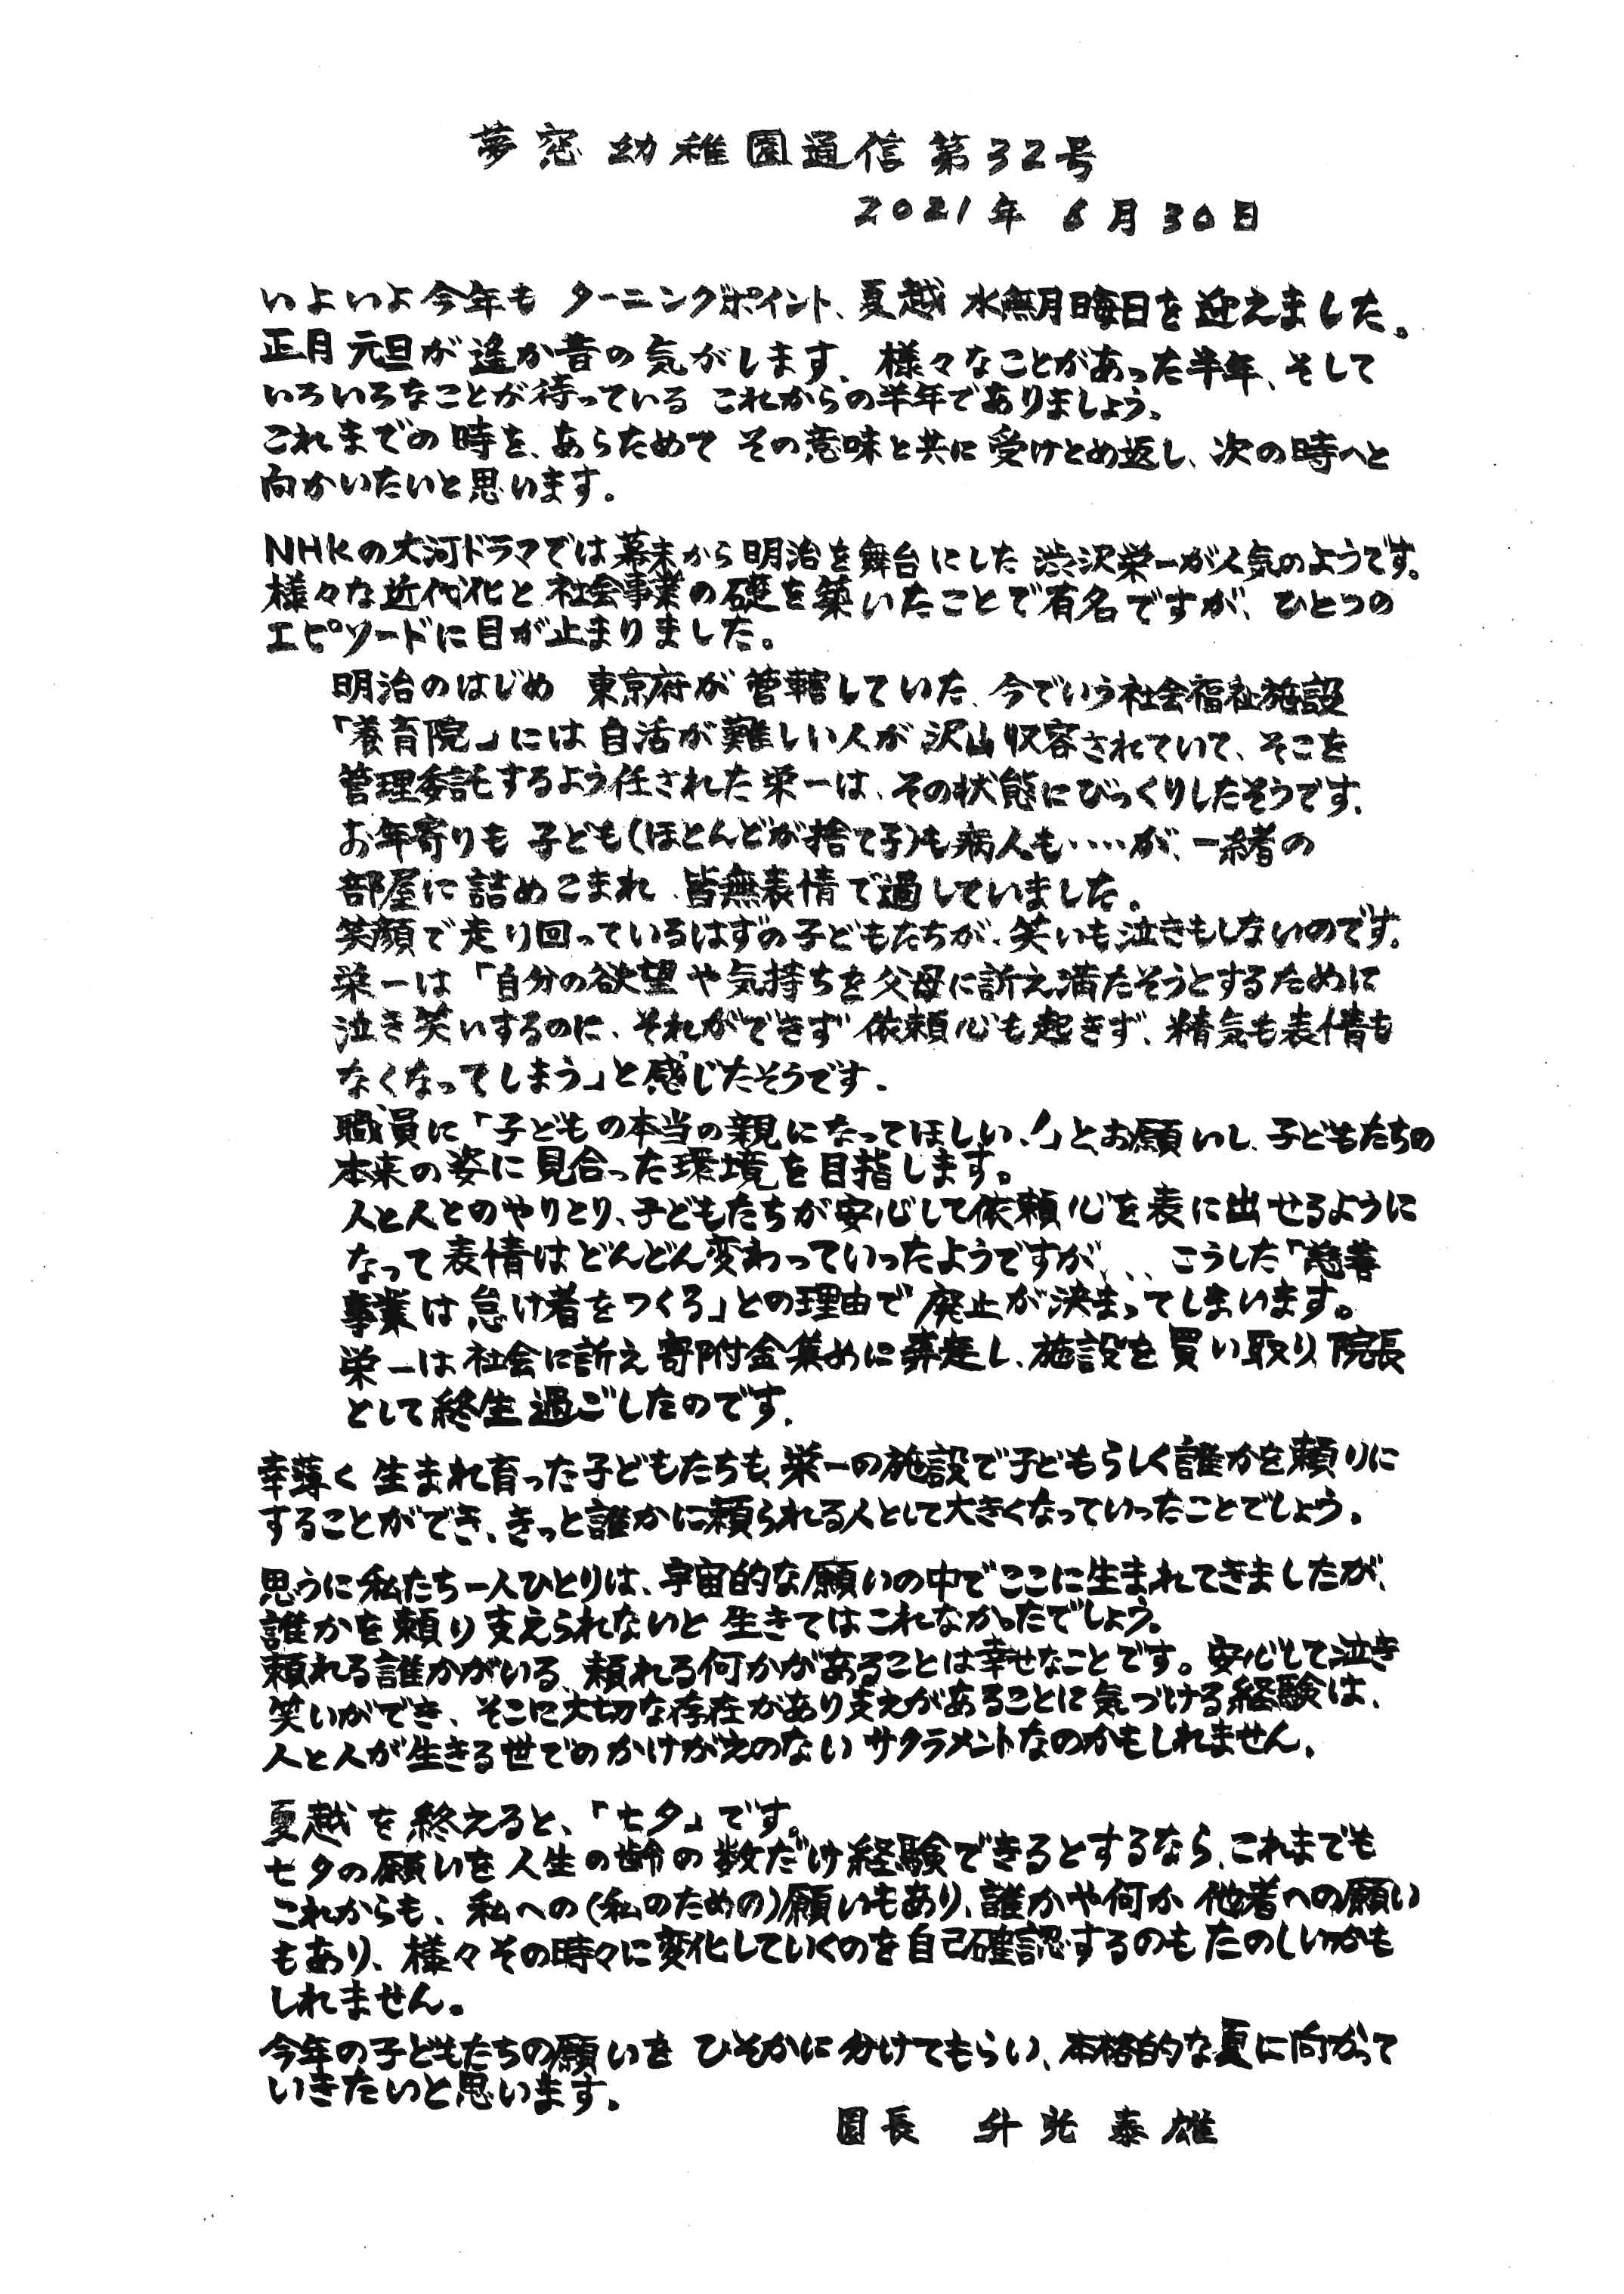 夢窓幼稚園通信 第32号
2021年 6月30日
いよいよ今年も ターニングポイント、夏越 水無月晦日を迎えました。
正月元旦が遙か昔の気がします、様々なことがあった半年、そして
いろいろなことが待っている これからの半年でありましょう、
これまでの時を、あらためて その意味と共に受けとめ返し、次の時へと
向かいたいと思います。
NHKの大河ドラマでは幕末から明治を舞台にした渋沢栄一が人気のようです。
様々な近代化と社会事業の礎を築いたことで有名ですが、ひとつの
エピソードに目が止まりました。
明治のはじめ 東京府が管轄していた、今でいう社会福祉施設
「養育院」には自活が難しい人が沢山収容されていて、そこを
管理委託するよう任された栄一は、その状態にびっくりしたそうです。
お年寄りも 子ども(ほとんどが捨て子)も病人も‥‥が、一緒の
部屋に詰めこまれ 皆無表情で過していました。
笑顔で走り回っているはずの子どもたちが、笑いも泣きもしないのです。
栄一は「自分の欲望や気持ちを父母に訴え満たそうとするために
泣き笑いするのに、それができず 依頼心も起きず、精気も表情も
なくなってしまう」と感じたそうです。
職員に「子どもの本当の親になってほしい!」とお願いし、子どもたちの
本来の姿に見合った環境を目指します。
人と人とのやりとり、子どもたちが安心して依頼心を表に出せるように
なって表情はどんどん変わっていったようですが、、、こうした「慈善
事業は怠け者をつくる」との理由で廃止が決まってしまいます。
栄一は社会に訴え寄附金集めに奔走し、施設を買い取り、院長
として終生過ごしたのです。
幸薄く生まれ育った子どもたちも、栄一の施設で子どもらしく誰かを頼りに
することができ、きっと誰かに頼られる人として大きくなっていったことでしょう。
思うに私たち一人ひとりは、宇宙的な願いの中でここに生まれてきましたが、
誰かを頼り支えられないと 生きてはこれなかったでしょう。
頼れる誰かがいる、頼れる何かがあることは幸せなことです。安心して泣き
笑いができ、そこに大切な存在があり支えがあることに気づける経験は、
人と人が生きる世でのかけがえのないサクラメントなのかもしれません。
夏越を終えると、「七夕」です。
七夕の願いを人生の齢の数だけ経験できるとするなら、これまでも
これからも、私への(私のための)願いもあり、誰かや何か他者への願い
もあり、様々その時々に変化していくのを自己確認するのもたのしいかも
しれません。
今年の子どもたちの願いを ひそかに分けてもらい、本格的な夏に向かって
いきたいと思います。
園長 升光泰雄